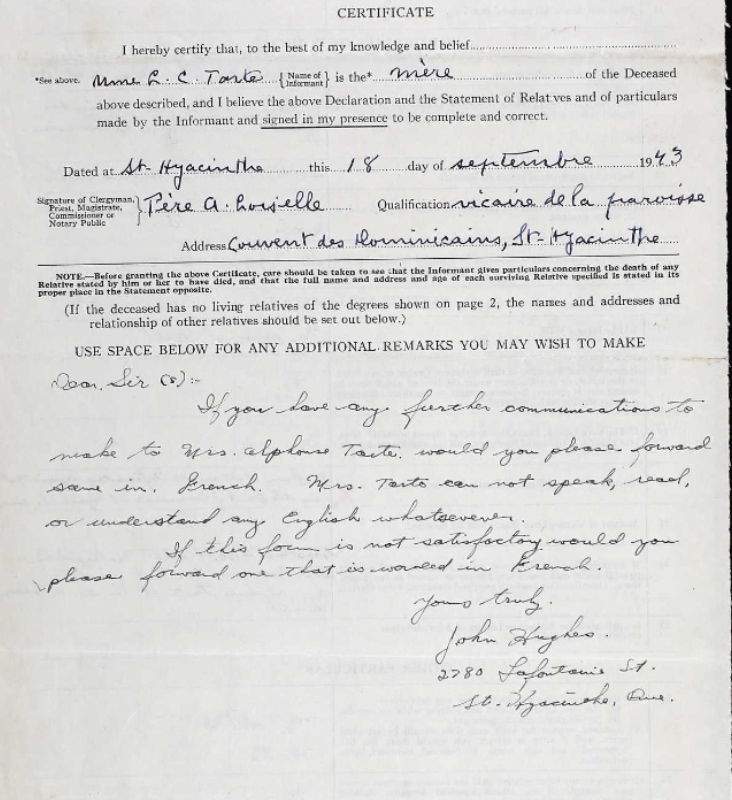 CERTIFICATE
I hereby certify that, to the best of my knowledge and belief
*See above. Mme L. C. Tarte {Name of Informant} is the* mère of the Deceased
above described, and I believe the above Declaration and the Statement of Relatives and of particulars
made by the Informant and signed in my presence to be complete and correct.
Dated at St-Hyacinthe this 18 day of septembre 1943
Signature of Clergyman, Priest, Magistrate, Commissioner or Notary Public } Père A. Loiselle Qualification vicaire de la paroisse
Address Couvent des Dominicains, St-Hyacinthe
NOTE.—Before granting the above Certificate, care should be taken to see that the Informant gives particulars concerning the death of any
Relative stated by him or her to have died, and that the full name and address and age of each surviving Relative specified is stated in its
proper place in the Statement opposite.
(If the deceased has no living relatives of the degrees shown on page 2, the names and addresses and
relationship of other relatives should be set out below.)
USE SPACE BELOW FOR ANY ADDITIONAL REMARKS YOU MAY WISH TO MAKE
Dear, Sir (s):-
If you have any further communications to
make to Mrs. Alphonse Tarte. would you please forward
same in. French. Mrs. Tarte can not speak, read,
or understand any English whatsoever.
If this form is not satisfactory would you
please forward one that is worded in French.
Yours truly.
John Hughes.
2780 Lafontaine St.
St. Hyacinthe, Que.